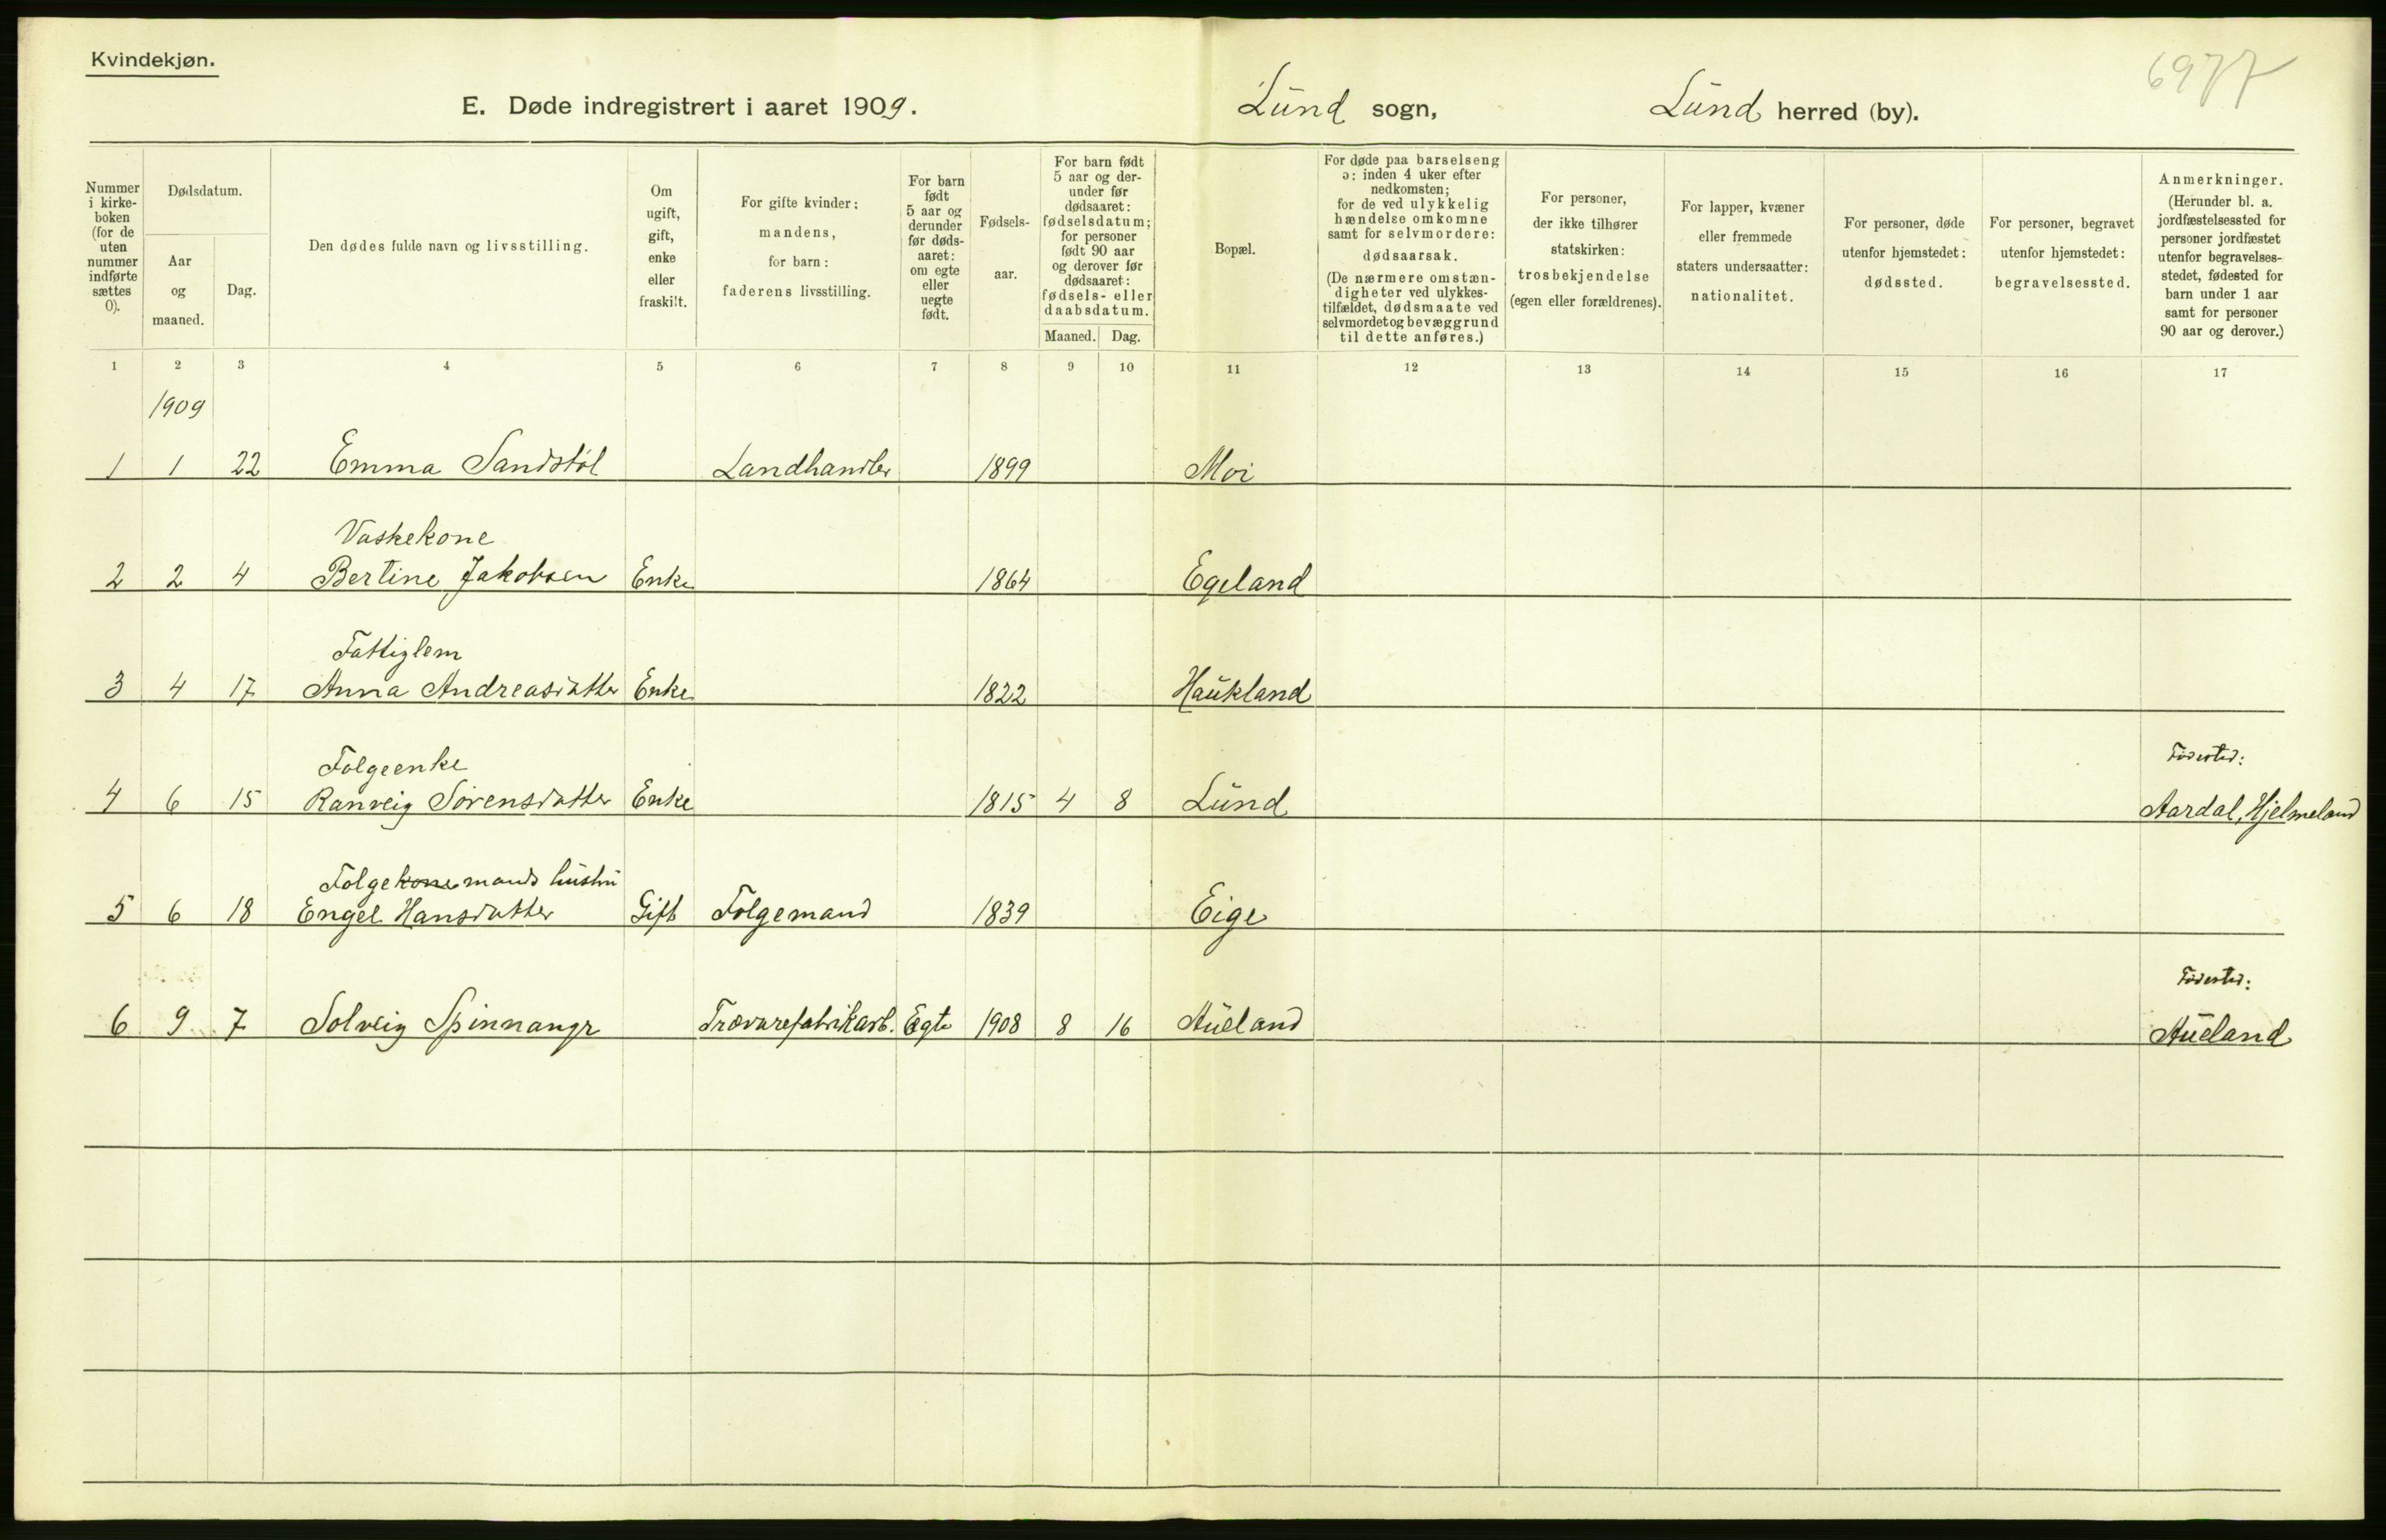 Kvindekjøn.
6977
E. Døde indregistrert i aaret 1909.
Lund sogn,
Lund herred (by).
Nummer
i kirke-
boken
(for de
uten
nummer
indførte
sættes
0).
Dødsdatum.
Aar
og
maaned.
Dag.
Den dødes fulde navn og livsstilling.
Om
ugift,
gift,
enke
eller
fraskilt.
For gifte kvinder:
mandens,
for barn:
faderens livsstilling.
For barn
født
5 aar og
derunder
før døds-
aaret:
om egte
eller
uegte
født.
Fødsels-
aar.
For barn født
5 aar og der-
under før
dødsaaret:
fødselsdatum;
for personer
født 90 aar
og derover før
dødsaaret:
fødsels- eller
daabsdatum.
Maaned. Dag.
Bopæl.
For døde paa barselseng
ɔ: inden 4 uker efter
nedkomsten;
for de ved ulykkelig
hændelse omkomne
samt for selvmordere:
dødsaarsak.
(De nærmere omstæn-
digheter ved ulykkes-
tilfældet, dødsmaate ved
selvmordet og bevæggrund
til dette anføres.)
For personer,
der ikke tilhører
statskirken:
trosbekjendelse
(egen eller forældrenes).
For lapper, kvæner
eller fremmede
staters undersaatter:
nationalitet.
For personer, døde
utenfor hjemstedet:
dødssted.
For personer, begravet
utenfor hjemstedet:
begravelsessted.
Anmerkninger.
(Herunder bl. a.
jordfæstelsessted for
personer jordfæstet
utenfor begravelses-
stedet, fødested for
barn under 1 aar
samt for personer
90 aar og derover.)
1 2 3 4 5 6 7 8 9 10 11 12 13 14 15 16 17
1909
1 1 22 Emma Sandstøl Landhandler 1899 Moi
Vaskekone
2 2 4 Bertine Jakobsen Enke 1864 Egeland
Fattiglem
3 4 17 Anna Andreasdatter Enke 1822 Haukland
Folgeenke Fødested:
4 6 15 Ranveig Sørensdatter Enke 1815 4 8 Lund Aardal, Hjelmeland
Folgekone mands hustru
5 6 18 Engel Hansdatter Gift Folgemand 1839 Eige
Fødested:
6 9 7 Solveig Spinnangr Trævarefabrikarb. Egte 1908 8 16 Aueland Aueland